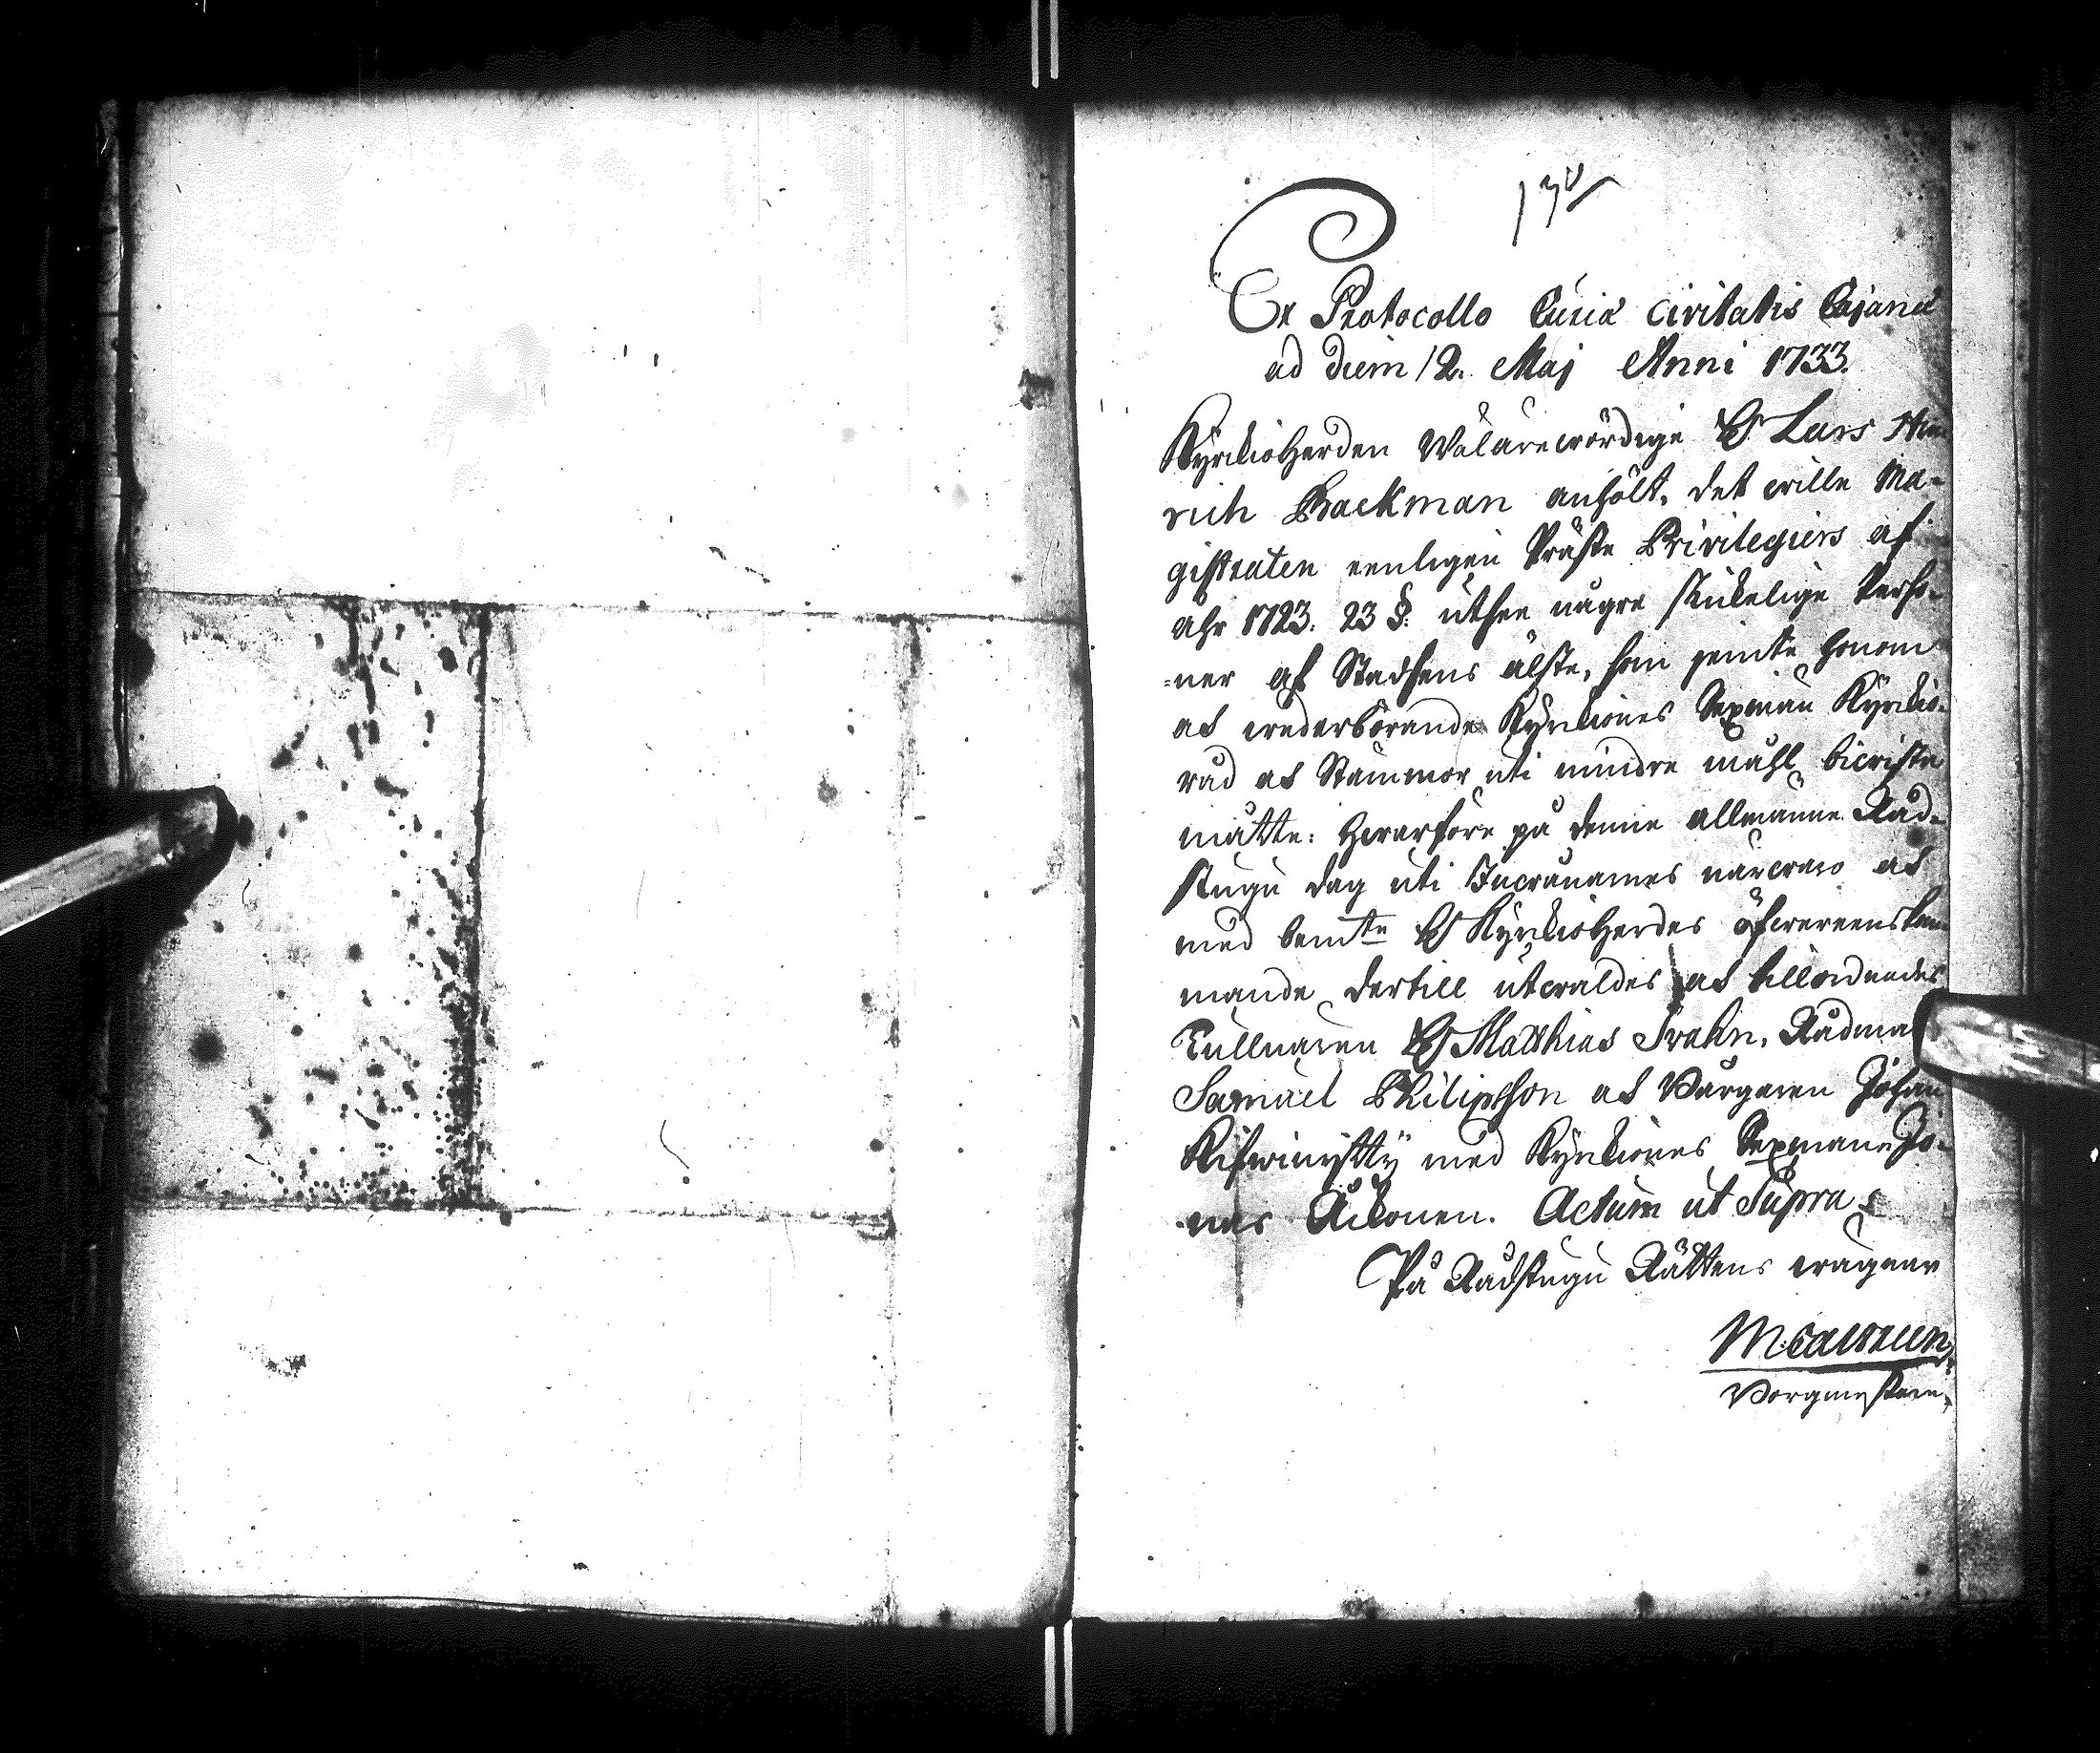 Ex Protocollo Curiæ Civitatis Cajanæ
ad diem 12. Maj Anni 1733.
Kyrckioherden Wälärewördige H Lars Hin
rich Backman anhölt, det wille Ma-
gistraten eenligen Präste Privilegiers af
ahr 1723. 23 §. uthsee någre skickelige Perso-
ner af Stadsens älste, som jemte honom
och wederbörande Kyrckiones Sexman Kyrckio-
råd och Stämmor uti mindre måhl bewista
måtte: Hwarföre på denne allmänne Råd-
stugu dag uti Inwånarnes närwaro och
med bemte H Kyrckioherdes öfwereenskom
mande dertill utwaldes och tillordnades
Tullnären H Matthias Frahn, Rådman
Samuel Philipsson och Borgaren Johan
med Kyrckiones Sexman Jo-
nas Actum ut Supra
På Rådstugu Rättens wägnar
Borgmestare